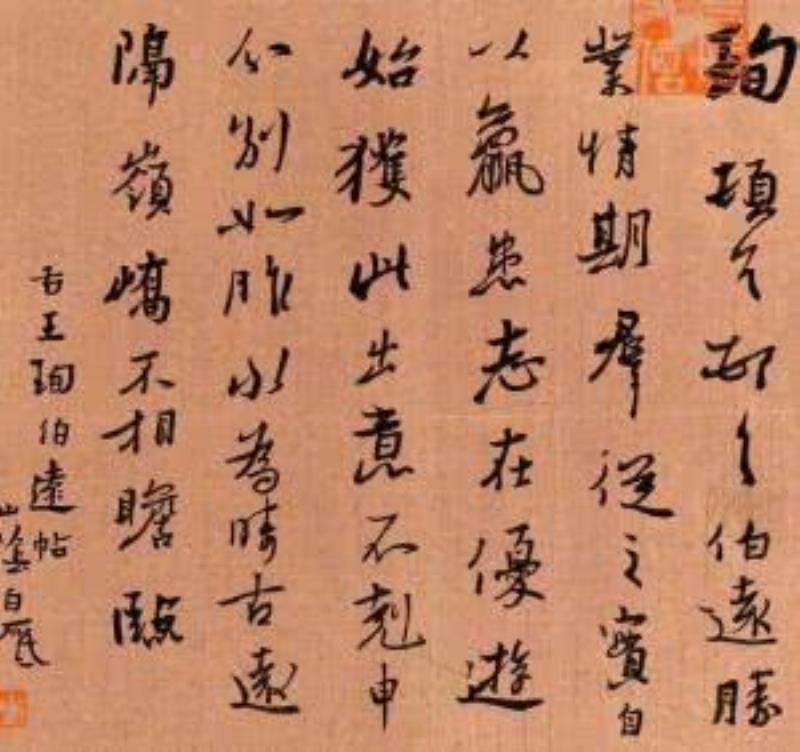 珣頓首頓首伯遠勝
業情期羣從之寶自
以羸患志在優遊
始獲此出意不剋申
分別如昨永為疇古遠
隔嶺嶠不相瞻臨
右王珣伯遠帖
山陰白